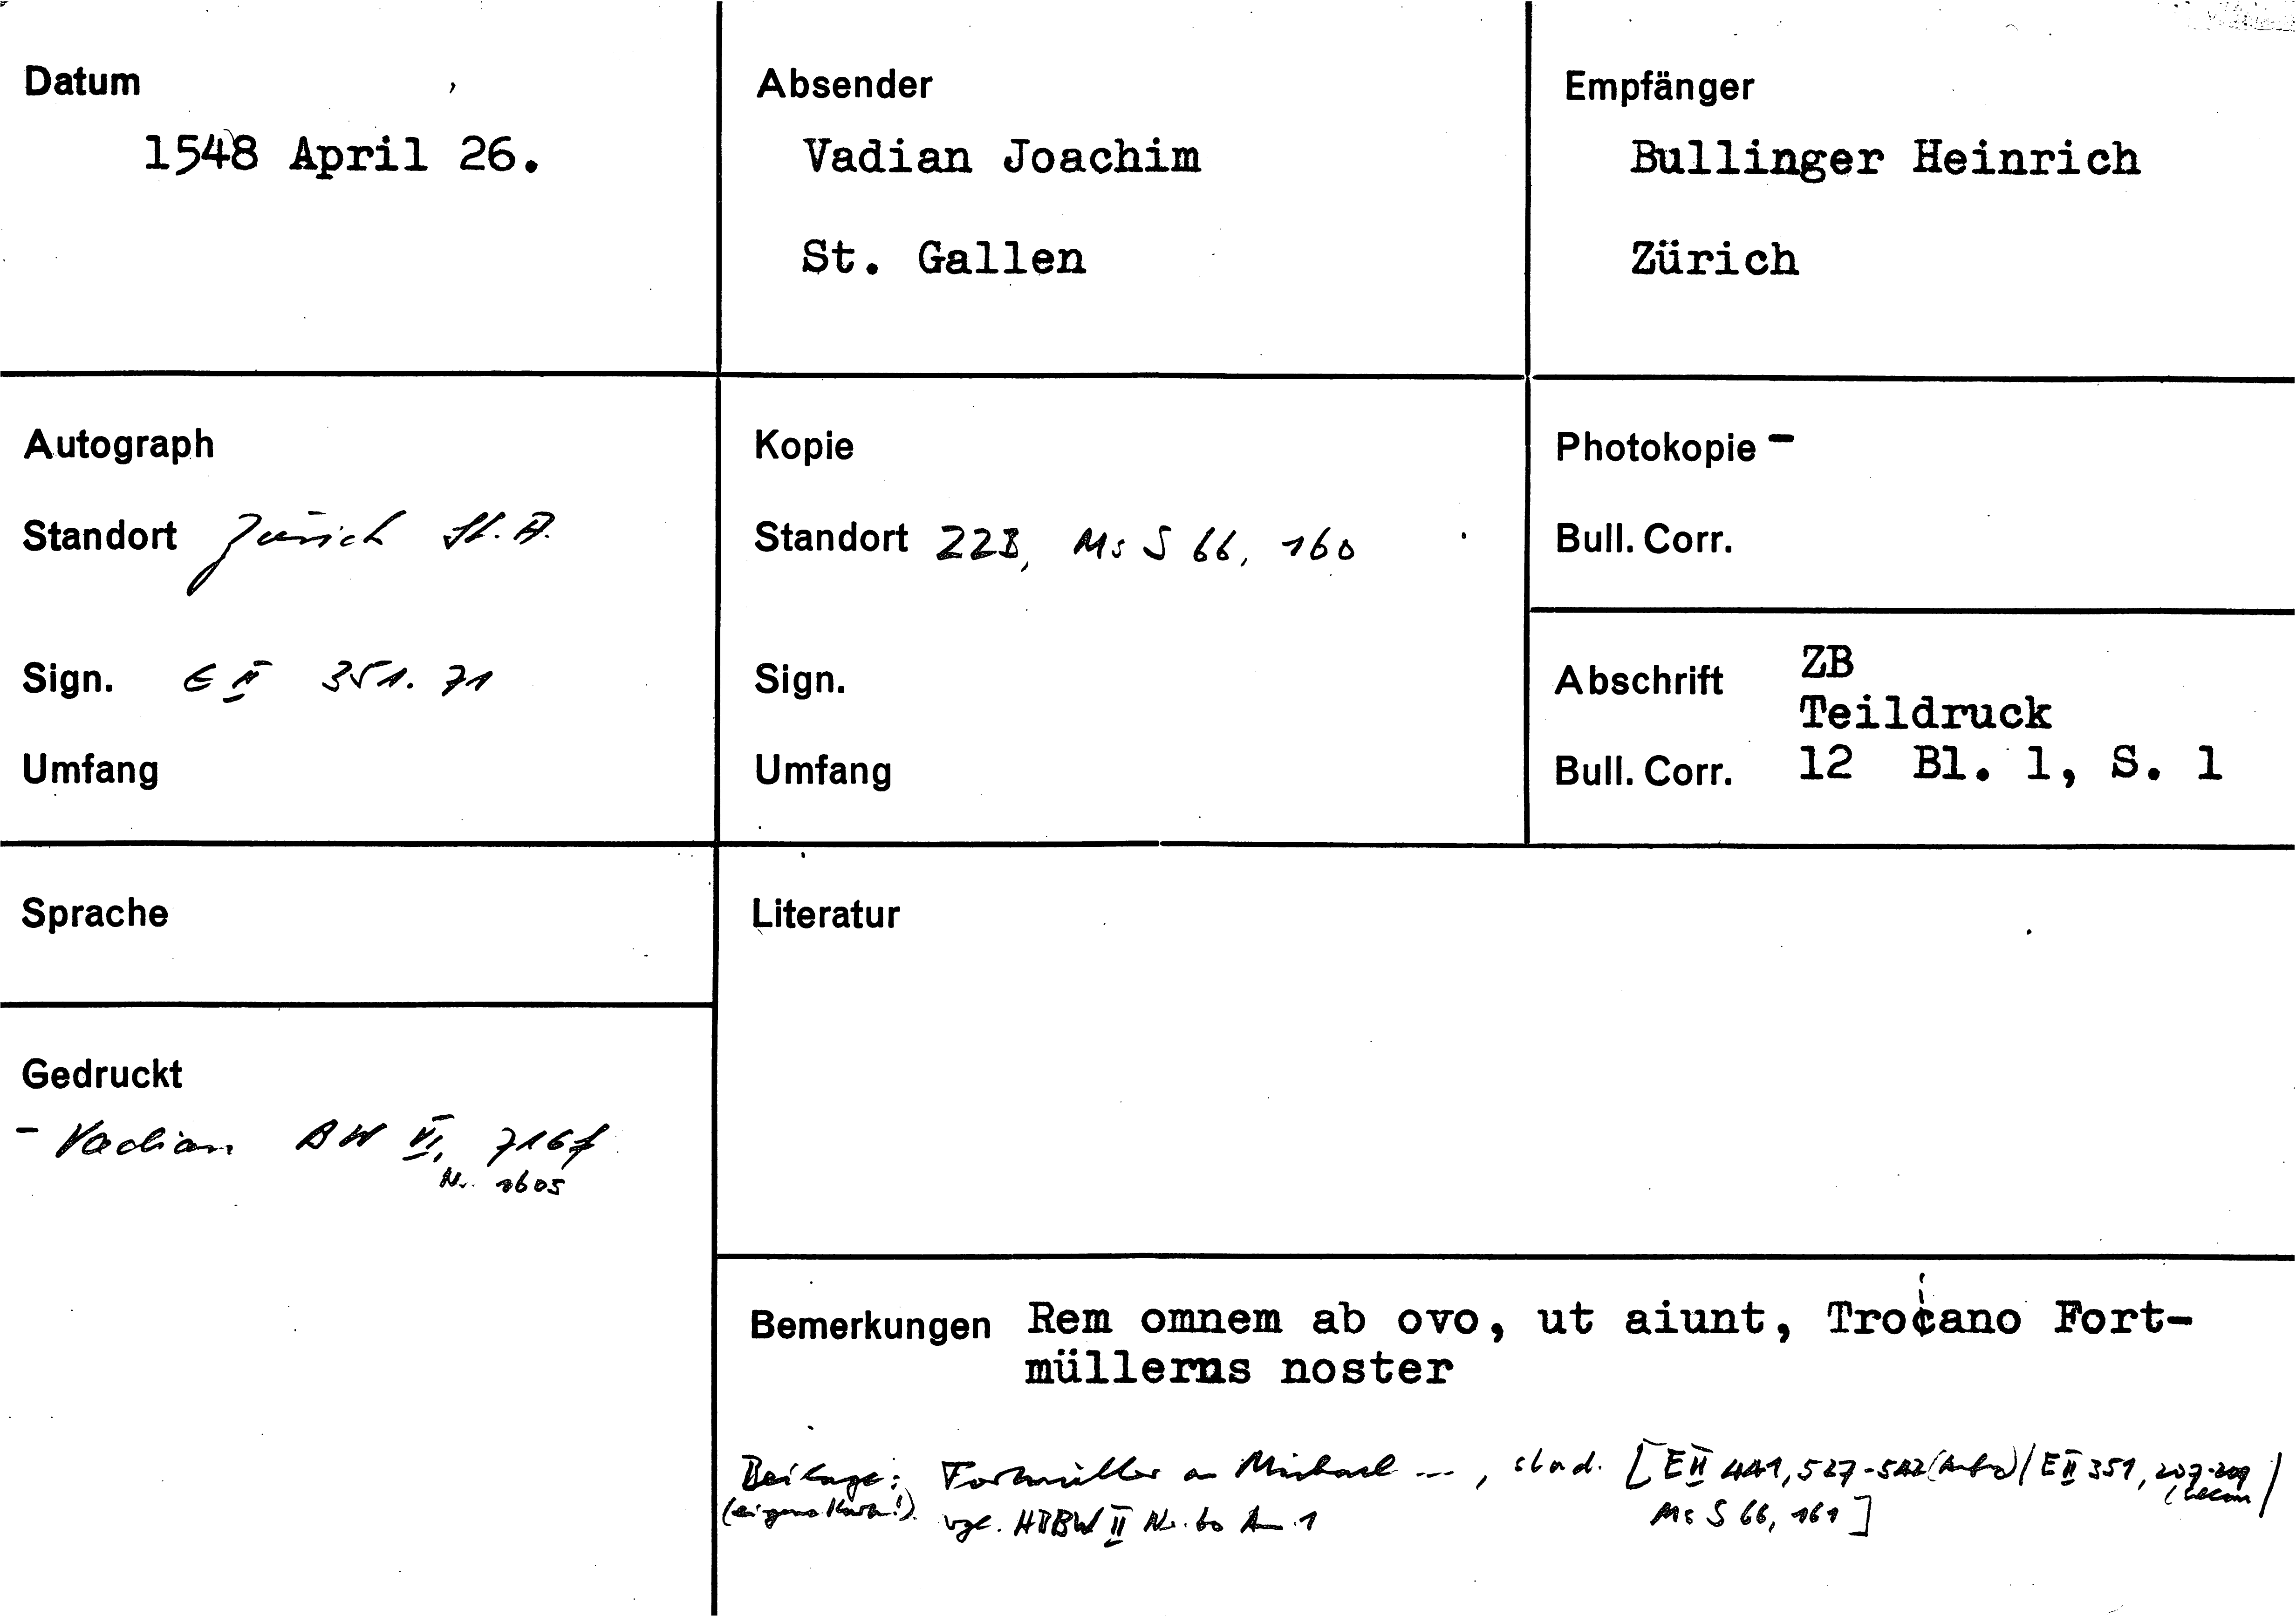 Datum
1548 April 26.
Absender
Vadian Joachim
St. Gallen
Empfänger
Bullinger Heinrich
Zürich
Autograph
Standort Zürich St. A.
Sign. E II 351. 71
Umfang
Kopie
Standort ZZB, Ms S 66, 160
Sign.
Umfang
Photokopie -
Bull. Corr.
Abschrift ZB
Teildruck
Bull. Corr. 12 Bl. 1, S. 1
Sprache
Literatur
Gedruckt
- Vadian BW VI, 716f
Nr. 1605
Bemerkungen Rem omnem ab ovo, ut aiunt, Trocano Fort-
müllerns noster
Beilage: Fortmüller an Michael ..., s. l. n. d. [E II 441, 527-542 (Auto) / E II 351, 207-209
(eigene Karte!). vgl. HBBW II Nr. 60 A. 1
Ms S 66, 161]